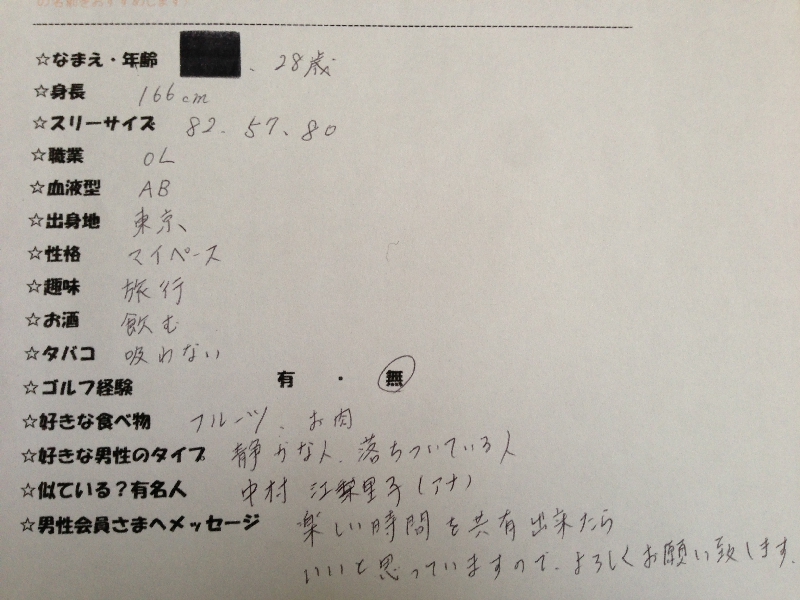 の名前をおすすめします）
☆なまえ・年齢 、28歳
☆身長 166cm
☆スリーサイズ 82、57、80
☆職業 OL
☆血液型 AB
☆出身地 東京、
☆性格 マイペース
☆趣味 旅行
☆お酒 飲む
☆タバコ 吸わない
☆ゴルフ経験 有 ・ 無
☆好きな食べ物 フルーツ、お肉
☆好きな男性のタイプ 静かな人、落ちついている人
☆似ている？有名人 中村 江梨里子(アナ)
☆男性会員さまへメッセージ 楽しい時間を共有出来たら
いいと思っていますので、よろしくお願い致します。